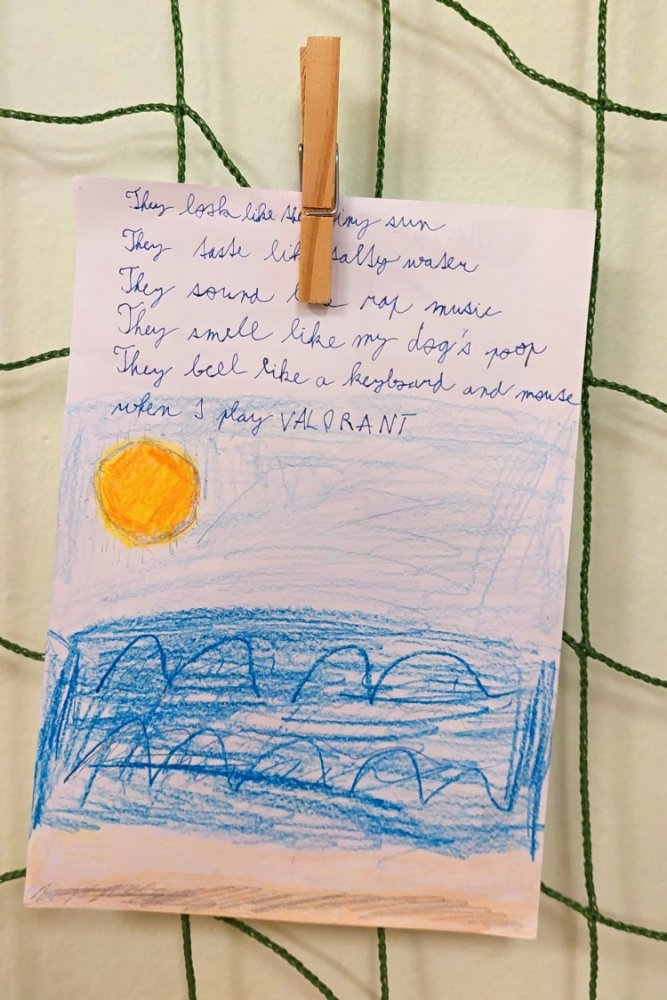 They look like the iny sun
They taste lik salty water
They sound l e rap music
They smell like my dog's poop
They beel like a keyboard and mouse
when I play VALORANT